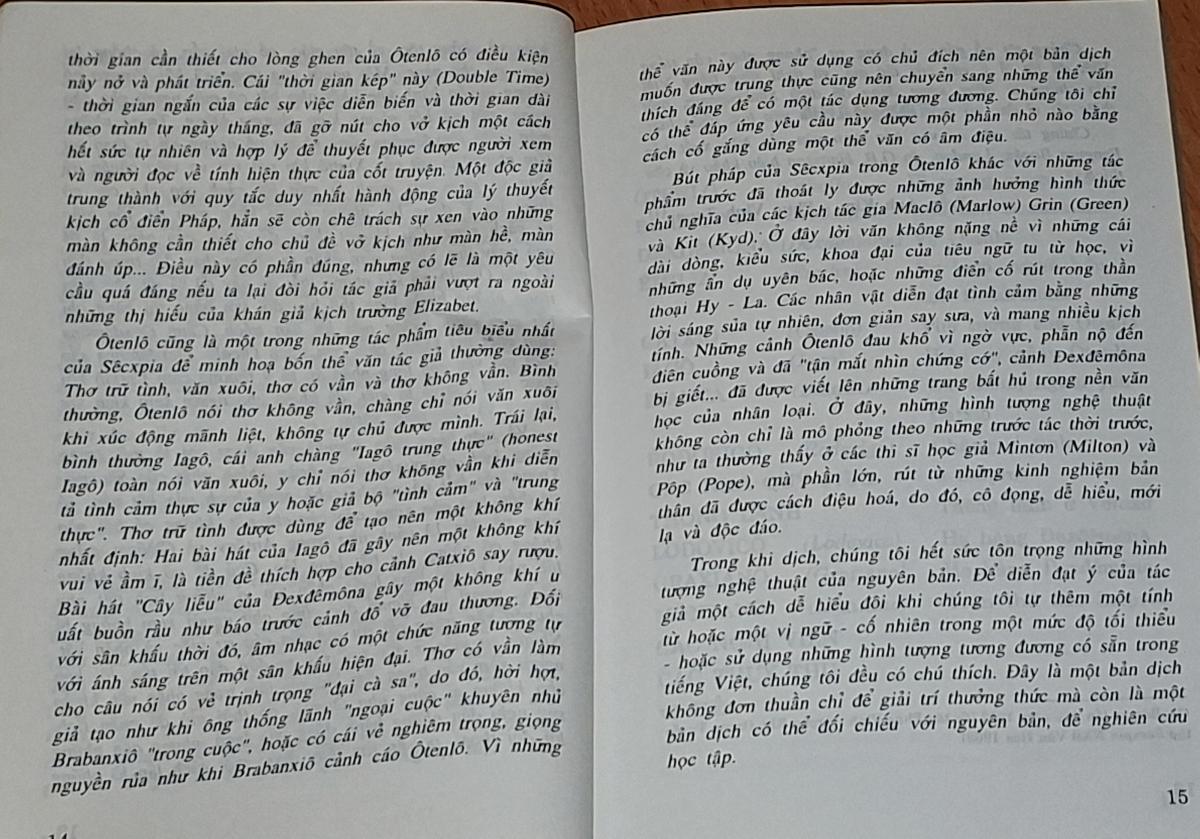 thời gian cần thiết cho lòng ghen của Ôtenlô có điều kiện
nảy nở và phát triển. Cái "thời gian kép" này (Double Time)
- thời gian ngắn của các sự việc diễn biến và thời gian dài
theo trình tự ngày tháng, đã gỡ nút cho vở kịch một cách
hết sức tự nhiên và hợp lý để thuyết phục được người xem
và người đọc về tính hiện thực của cốt truyện. Một độc giả
trung thành với quy tắc duy nhất hành động của lý thuyết
kịch cổ điển Pháp, hẳn sẽ còn chê trách sự xen vào những
màn không cần thiết cho chủ đề vở kịch như màn hề, màn
đánh úp... Điều này có phần đúng, nhưng có lẽ là một yêu
cầu quá đáng nếu ta lại đòi hỏi tác giả phải vượt ra ngoài
những thị hiếu của khán giả kịch trường Elizabet.
Ôtenlô cũng là một trong những tác phẩm tiêu biểu nhất
của Sêcxpia để minh hoạ bốn thể văn tác giả thường dùng:
Thơ trữ tình, văn xuôi, thơ có vần và thơ không vần. Bình
thường, Ôtenlô nói thơ không vần, chàng chỉ nói văn xuôi
khi xúc động mãnh liệt, không tự chủ được mình. Trái lại,
bình thường Iagô, cái anh chàng "Iagô trung thực" (honest
Iagô) toàn nói văn xuôi, y chỉ nói thơ không vần khi diễn
tả tình cảm thực sự của y hoặc giả bộ "tình cảm" và "trung
thực". Thơ trữ tình được dùng để tạo nên một không khí
nhất định: Hai bài hát của Iagô đã gây nên một không khí
vui vẻ ầm ĩ, là tiền đề thích hợp cho cảnh Catxiô say rượu.
Bài hát "Cây liễu" của Đexđêmôna gây một không khí u
uất buồn rầu như báo trước cảnh đổ vỡ đau thương. Đối
với sân khấu thời đó, âm nhạc có một chức năng tương tự
với ánh sáng trên một sân khấu hiện đại. Thơ có vần làm
cho câu nói có vẻ trịnh trọng "đại cà sa", do đó, hời hợt,
giả tạo như khi ông thống lãnh "ngoại cuộc" khuyên nhủ
Brabanxiô "trong cuộc", hoặc có cái vẻ nghiêm trọng, giọng
nguyền rủa như khi Brabanxiô cảnh cáo Ôtenlô. Vì những
14
thể văn này được sử dụng có chủ đích nên một bản dịch
muốn được trung thực cũng nên chuyển sang những thể văn
thích đáng để có một tác dụng tương đương. Chúng tôi chỉ
có thể đáp ứng yêu cầu này được một phần nhỏ nào bằng
cách cố gắng dùng một thể văn có âm điệu.
Bút pháp của Sêcxpia trong Ôtenlô khác với những tác
phẩm trước đã thoát ly được những ảnh hưởng hình thức
chủ nghĩa của các kịch tác gia Maclô (Marlow) Grin (Green)
và Kit (Kyd). Ở đây lời văn không nặng nề vì những cái
dài dòng, kiểu sức, khoa đại của tiêu ngữ tu từ học, vì
những ẩn dụ uyên bác, hoặc những điển cố rút trong thần
thoại Hy - La. Các nhân vật diễn đạt tình cảm bằng những
lời sáng sủa tự nhiên, đơn giản say sưa, và mang nhiều kịch
tính. Những cảnh Ôtenlô đau khổ vì ngờ vực, phẫn nộ đến
điên cuồng và đã "tận mắt nhìn chứng cớ", cảnh Đexđêmôna
bị giết... đã được viết lên những trang bất hủ trong nền văn
học của nhân loại. Ở đây, những hình tượng nghệ thuật
không còn chỉ là mô phỏng theo những trước tác thời trước,
như ta thường thấy ở các thi sĩ học giả Mintơn (Milton) và
Pôp (Pope), mà phần lớn, rút từ những kinh nghiệm bản
thân đã được cách điệu hoá, do đó, cô đọng, dễ hiểu, mới
lạ và độc đáo.
Trong khi dịch, chúng tôi hết sức tôn trọng những hình
tượng nghệ thuật của nguyên bản. Để diễn đạt ý của tác
giả một cách dễ hiểu đôi khi chúng tôi tự thêm một tính
từ hoặc một vị ngữ - cố nhiên trong một mức độ tối thiểu
- hoặc sử dụng những hình tượng tương đương có sẵn trong
tiếng Việt, chúng tôi đều có chú thích. Đây là một bản dịch
không đơn thuần chỉ để giải trí thưởng thức mà còn là một
bản dịch có thể đối chiếu với nguyên bản, để nghiên cứu
học tập.
15